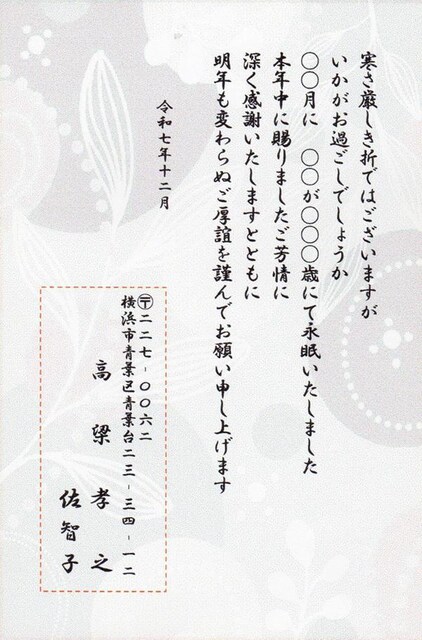 寒さ厳しき折ではございますが
いかがお過ごしでしょうか
〇〇月に　〇〇が〇〇〇歳にて永眠いたしました
本年中に賜りましたご芳情に
深く感謝いたしますとともに
明年も変わらぬご厚誼を謹んでお願い申し上げます
令和七年十二月
〒二二七-〇〇六二
横浜市青葉区青葉台二三-三四-一二
高梁孝之
佐智子